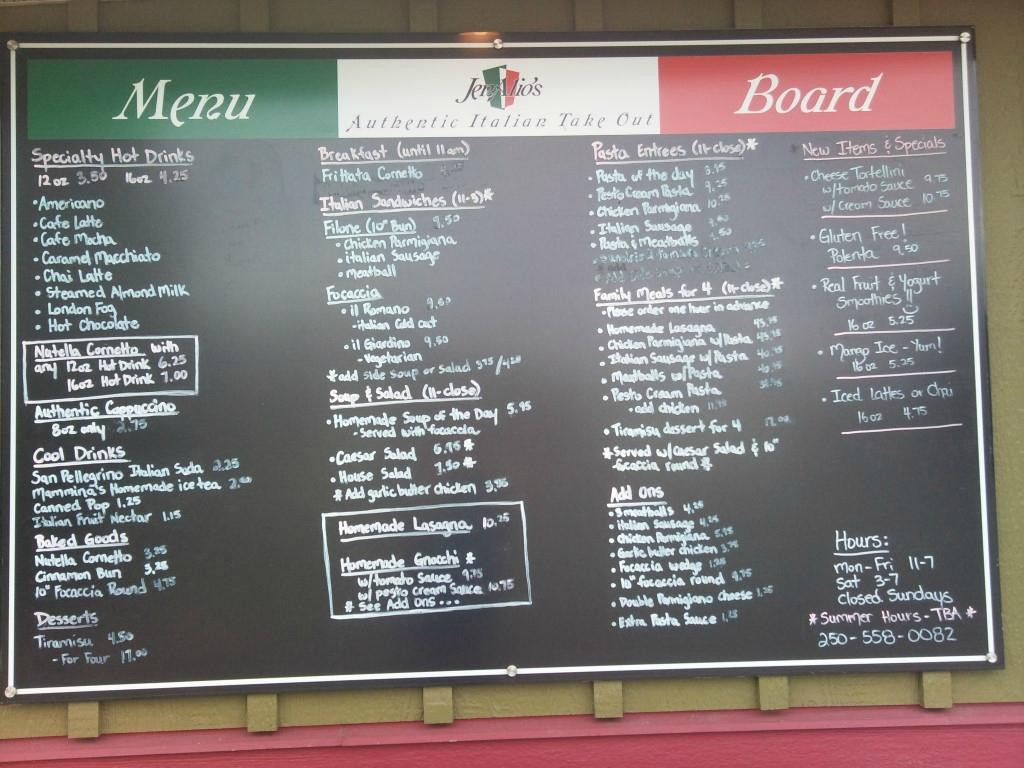 Menu
JerAlio's
Authentic Italian Take Out
Board
Specialty Hot Drinks
12 oz 3.50 16oz 4.25
• Americano
• Cafe Latte
• Cafe Mocha
• Caramel Macchiato
• Chai Latte
• Steamed Almond Milk
• London Fog
• Hot Chocolate
Nutella Cornetto with
any 12oz Hot Drink 6.25
16oz Hot Drink 7.00
Authentic Cappuccino
8oz only 2.75
Cool Drinks
San Pellegrino Italian Soda 2.25
Mammina's Homemade ice tea
Canned Pop 1.25
Italian Fruit Nectar 1.15
Baked Goods
Nutella Cornetto 3.25
Cinnamon Bun 3.25
10" Focaccia Round 4.75
Desserts
Tiramisu 4.50
- For Four 17.00
Breakfast (until 11am)
Frittata Cornetto
Italian Sandwiches (11-3)*
Filone (10" Bun) 9.50
• Chicken Parmigiana
• italian Sausage
• meatball
Focaccia
• il Romano 9.60
- italian Cold cut
• il Giardino 9.50
- Vegetarian
*add side soup or salad 3.75/4.25
Soup & Salad (11-close)
• Homemade Soup of the Day 5.95
- Served with focaccia
• Caesar Salad 6.75 *
• House Salad 7.50 *
* Add garlic butter chicken 3.95
Homemade Lasagna 10.25
Homemade Gnocchi *
w/tomato sauce 9.75
w/ pesto cream Sauce 10.75
* See Add Ons...
Pasta Entrees (11-close)*
• Pasta of the day
• Pesto Cream Pasta 9.25
• Chicken Parmigiana 10.25
• Italian Sausage
• Pasta & Meatballs
Family Meals for 4 (11-close)*
- Please order one hour in advance
• Homemade Lasagna
• Chicken Parmigiana w/Pasta
• Italian Sausage w/ Pasta
• Meatballs w/Pasta
• Pesto Cream Pasta
- add chicken
• Tiramisu dessert for 4 17.00
*Served w/Caesar Salad & 10"
focaccia round *
Add Ons
• 3 meatballs 4.25
• italian Sausage 4.25
• Chicken Parmigiana 5.75
• Garlic butter chicken
• Focaccia wedge 1.25
• 10" focaccia round 4.75
• Double Parmigiano cheese 1.25
• Extra Pasta Sauce 1.25
New Items & Specials
• Cheese Tortellini
w/tomato sauce 9.75
w/Cream Sauce 10.75
• Gluten Free!
Polenta 9.50
• Real Fruit & Yogurt
Smoothies!!
16 oz 5.25
• Mango Ice - Yum!
16 oz 5.25
• Iced lattes or Chai
16oz 4.75
Hours:
mon-Fri 11-7
Sat 3-7
Closed Sundays
* Summer Hours - TBA *
250-558-0082